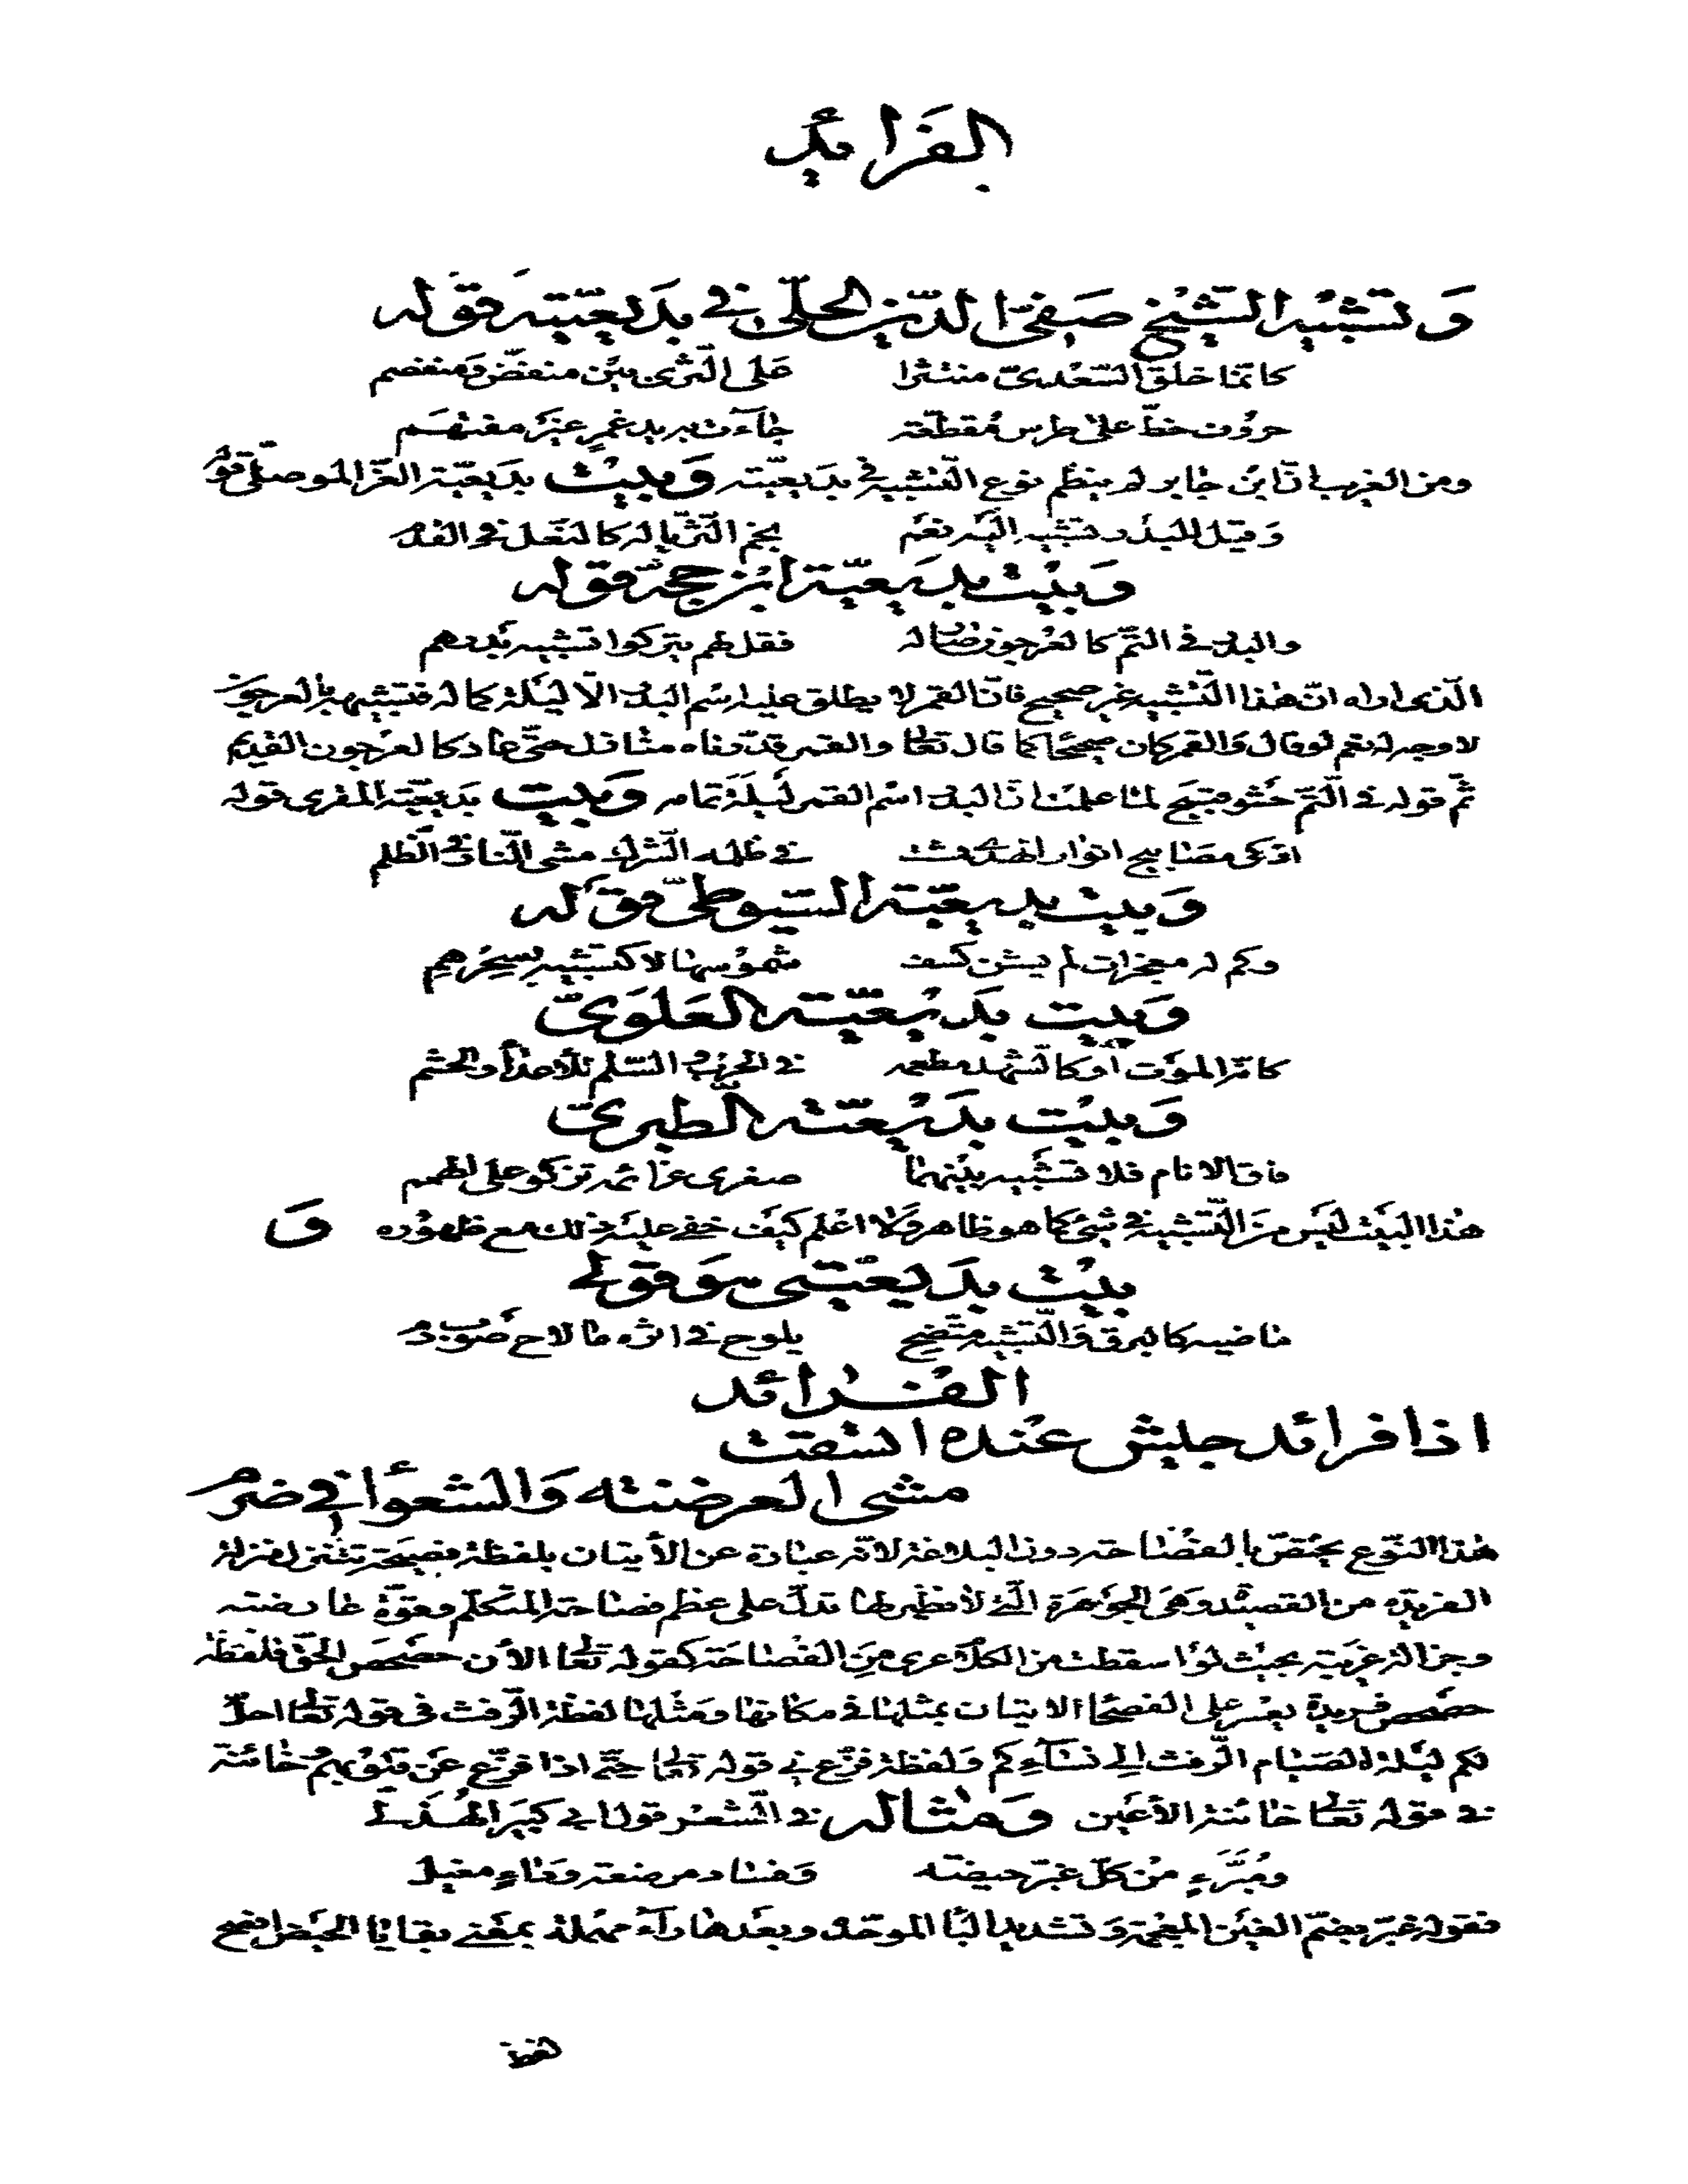 الفرائد
وَتشبيه الشيخ صَفيّ الدّين الحلّيّ في بدَيعيّته قوله
كانّما خلق السّعْديّ منتثرا عَلى الثّرى بيْن منفضّ وَمنفصم
حروُف خطّ على طرس مُقطّعة جاءت بهايد غمرٍ غيْر مفتهَم
ومن الغريب انّ ابن جابر لم ينظم نوع التّشبيه في بديعيّته وَبيْت بدَيعيّة العزّ الموصلّي قوله
وَقيل للبدْر تشبيه اليْه نعَم نجم الثّريّا له كالنعل في القدم
وَبيْت بديَعيّة ابن حجّة قوله
والبدر في التمّ كالعرْجون صار له فقل لهم يتركوا تشبيه بدرهم
الّذي اراه انّ هذا التّشبيه غير صحيح فانّ القمر لا يطلق عليه اسْم البدر الّا ليْلة كماله فتشبيهه بالعرجون
لا وجه له نعم لو قال وَالقمر كان صحيحًا كما قال تعالى والقمر قدّرناه منازل حتّى عاد كالعرْجون القديم
ثمّ قوله في التّمّ حَشو قبيح لما علمت انّ البدر اسْم القمر ليْلَة تمامه وَبيت بدَيعيّة المقري قوله
اذكى مصابيح انوار الهدى في ظلمه الشّرك مشي النّار في الظّلم
وَبيت بديعيّة السّيوطيّ قوْله
وكم له معجزات لم يشن كسف شموُسها لا كتشبيه بسِحْرهمِ
وَبيت بدَيْعيّة العَلَويّ
كانّه الموْت اوْ كالشّهد مطعمه في الحرْب والسّلم للأعداء والحشم
وَبيْت بدَيْعيّة الطّبريّ
فاق الانام فلا تشْبيه بيْنهما صغرى عزائمه تزكوُ على الهمم
هٰذا البيْت ليْس منَ التّشبيْه في شئ كما هو ظاهر وَلا اعْلم كيْف خفي عليْه ذلك مع ظهوُره وَ
بيْت بدَيعيْتي هوَ قولي
ماضيه كالبرق وَالتّشبيْه متّضح يلوح في اثره ما لاح صوْب دم
الفرائد
اذا فرائد جيش عنْده اتسّقت
مشى العرضنة وَالشعوْاء في ضرم
هٰذا النوّع يختصّ بالفصْاحة دون البلاغة لانّه عبارة عن الأتيان بلفظة فصيحة تتنزّل منزلة
الفريدة من القصيْد وَهيَ الجوْهرَة الّتي لا نظير لها تدلّ على عظم فصاحة المتكلّم وَقوّة عارضته
وجزالة عربيّته بحيْث لوْ اسقطت من الكلام عرى مِنَ الفصاحَة كقوله تعالى الأن حصْحصَ الحقّ فلفظة
حصْحص فريدة يعْسر على الفصحا الاتيان بمثلها في مكانها وَمثْلها لفظة الرّفث في قوله تعالى احلّ
لكم ليْلة الصّيام الرّفث الى نسآءِكم وَلفظة فزّع في قوله تعالى حتّى اذا فزّع عَن قلوبهمْ خائنة
في قوله تعالى خائنة الأعيْن وَمثاله في الشّعْر قول ابي كبيْر الهُذَلي
ومُبَرَّءٍ مْن كلّ غبّر حيضة وَفساد مرضعة وَدآءٍ مغيل
فقوله غبّر بضمّ الغيْن المعْجمة وَتشديد البْا الموحّدة وبعْدها رآء مهْملة بمعْنى بقايا الحيْض افصح
لفظ